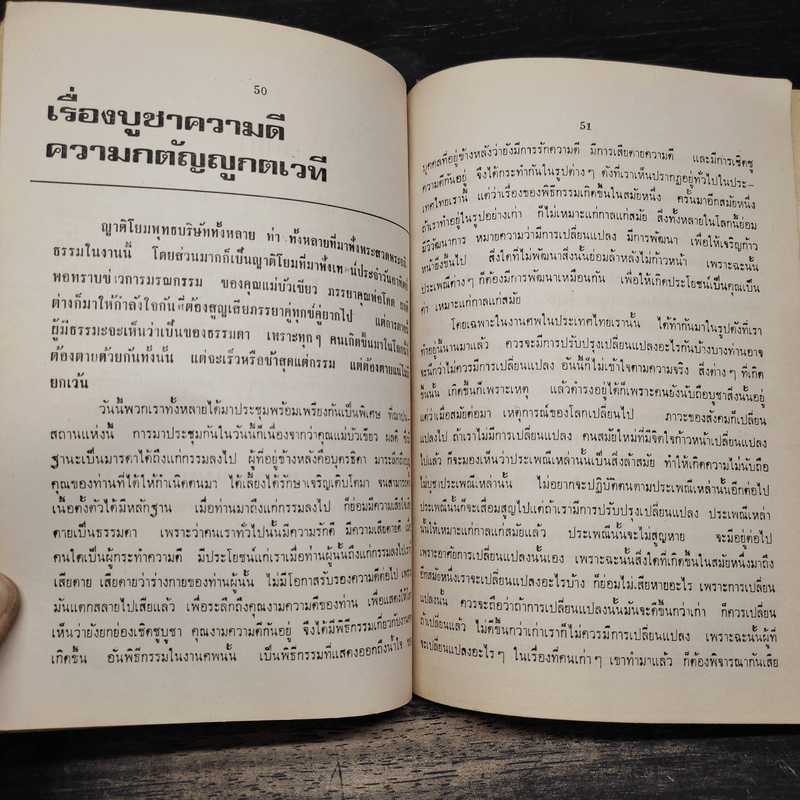 50
เรื่องบูชาความดี
ความกตัญญูกตเวที
ญาติโยมพุทธบริษัททั้งหลาย ทั้งหลายที่มาฟังพระสวดพระอภิ
ธรรมในงานนี้ โดยส่วนมากก็เป็นญาติโยมที่มาฟังเทศน์ประจำวันอาทิตย์
พอทราบข่าวการมรณกรรม ของคุณแม่บัวเขียว ภรรยาคุณพ่อโคด
ต่างก็มาให้กำลังใจกันที่ต้องสูญเสียภรรยาคู่ทุกข์คู่ยากไป แต่การตายนี้
ผู้มีธรรมะจะเห็นว่าเป็นของธรรมดา เพราะทุกๆ คนเกิดขึ้นมาในโลกนี้
ต้องตายด้วยกันทั้งนั้น แต่จะเร็วหรือช้าสุดแต่กรรม แต่ต้องตายแน่ไม่มี
ยกเว้น
วันนี้พวกเราทั้งหลายได้มาประชุมพร้อมเพรียงกันเป็นพิเศษ ที่ฌาปน
สถานแห่งนี้ การมาประชุมกันในวันนี้ก็เนื่องจากว่าคุณแม่บัวเขียว ผลดี
ฐานะเป็นมารดาได้ถึงแก่กรรมลงไป ผู้ที่อยู่ข้างหลังคือบุตรธิดา มาระลึกถึงบุญ
คุณของท่านที่ได้ให้กำเนิดตนมา ได้เลี้ยงได้รักษาเจริญเติบโตมา จนสามารถ
เนื้อตั้งตัวได้มีหลักฐาน เมื่อท่านมาถึงแก่กรรมลงไป ก็ย่อมมีความเสียใจเสีย
ดายเป็นธรรมดา เพราะว่าคนเราทั่วไปนั้นมีความรักดี มีความเสียดายดี
คนใดเป็นผู้กระทำความดี มีประโยชน์แก่เราเมื่อท่านผู้นั้นถึงแก่กรรมลงไปเรา
เสียดาย เสียดายว่าร่างกายของท่านผู้นั้น ไม่มีโอกาสรับรองความดีต่อไป เพราะ
มันแตกสลายไปเสียแล้ว เพื่อระลึกถึงคุณงามความดีของท่าน เพื่อแสดงให้โลก
เห็นว่ายังยกย่องเชิดชูบูชา คุณงามความดีกันอยู่ จึงได้มีพิธีกรรมเกี่ยวกับงานศพ
เกิดขึ้น อันพิธีกรรมในงานศพนั้น เป็นพิธีกรรมที่แสดงออกถึงน้ำใจ ของ
51
บุคคลที่อยู่ข้างหลังว่ายังมีการรักความดี มีการเสียดายความดี และมีการเชิดชู
ความดีกันอยู่ จึงได้กระทำกันในรูปต่างๆ ดังที่เราเห็นปรากฏอยู่ทั่วไปในประ-
เทศไทยเรานี้ แต่ว่าเรื่องของพิธีกรรมเกิดขึ้นในสมัยหนึ่ง ครั้นมาอีกสมัยหนึ่ง
ถ้าเราทำอยู่ในรูปอย่างเก่า ก็ไม่เหมาะแก่กาลแก่สมัย สิ่งทั้งหลายในโลกนี้ย่อม
มีวิวัฒนาการ หมายความว่ามีการเปลี่ยนแปลง มีการพัฒนา เพื่อให้เจริญก้าว
หน้ายิ่งขึ้นไป สิ่งใดที่ไม่พัฒนาสิ่งนั้นย่อมล้าหลังไม่ก้าวหน้า เพราะฉะนั้น
ประเพณีต่างๆ ก็ต้องมีการพัฒนาเหมือนกัน เพื่อให้เกิดประโยชน์เป็นคุณเป็น
ค่า เหมาะแก่กาลแก่สมัย
โดยเฉพาะในงานศพในประเทศไทยเรานั้น ได้ทำกันมาในรูปดังที่เรา
ทำอยู่นี้นานมาแล้ว ควรจะมีการปรับปรุงเปลี่ยนแปลงอะไรกันบ้างบางท่านอาจ
จะนึกว่าไม่ควรมีการเปลี่ยนแปลง อันนี้ก็ไม่เข้าใจตามความจริง สิ่งต่างๆ ที่เกิด
ขึ้นนั้น เกิดขึ้นก็เพราะเหตุ แล้วดำรงอยู่ได้ก็เพราะคนยังนับถือบูชาสิ่งนั้นอยู่
แต่ว่าเมื่อสมัยต่อมา เหตุการณ์ของโลกเปลี่ยนไป ภาวะของสังคมก็เปลี่ยน
แปลงไป ถ้าเราไม่มีการเปลี่ยนแปลง คนสมัยใหม่ที่มีจิตใจก้าวหน้าเปลี่ยนแปลง
ไปแล้ว ก็จะมองเห็นว่าประเพณีเหล่านั้นเป็นสิ่งล้าสมัย ทำให้เกิดความไม่นับถือ
ไม่บูชาประเพณีเหล่านั้น ไม่อยากจะปฏิบัติตนตามประเพณีเหล่านั้นอีกต่อไป
ประเพณีนั้นก็จะเสื่อมสูญไปแต่ถ้าเรามีการปรับปรุงเปลี่ยนแปลง ประเพณีเหล่า
นั้นให้เหมาะแก่กาลแก่สมัยแล้ว ประเพณีนั้นจะไม่สูญหาย จะมีอยู่ต่อไป
เพราะอาศัยการเปลี่ยนแปลงนั้นเอง เพราะฉะนั้นสิ่งใดที่เกิดขึ้นในสมัยหนึ่งมาถึง
อีกสมัยหนึ่งเราจะเปลี่ยนแปลงอะไรบ้าง ก็ย่อมไม่เสียหายอะไร เพราะการเปลี่ยน
แปลงนั้น ควรจะถือว่าถ้าการเปลี่ยนแปลงนั้นมันจะดีขึ้นกว่าเก่า ก็ควรเปลี่ยน
ถ้าเปลี่ยนแล้ว ไม่ดีขึ้นกว่าเก่าเราก็ไม่ควรมีการเปลี่ยนแปลง เพราะฉะนั้นผู้ที่
จะเปลี่ยนแปลงอะไรๆ ในเรื่องที่คนเก่าๆ เขาทำมาแล้ว ก็ต้องพิจารณากันเสีย